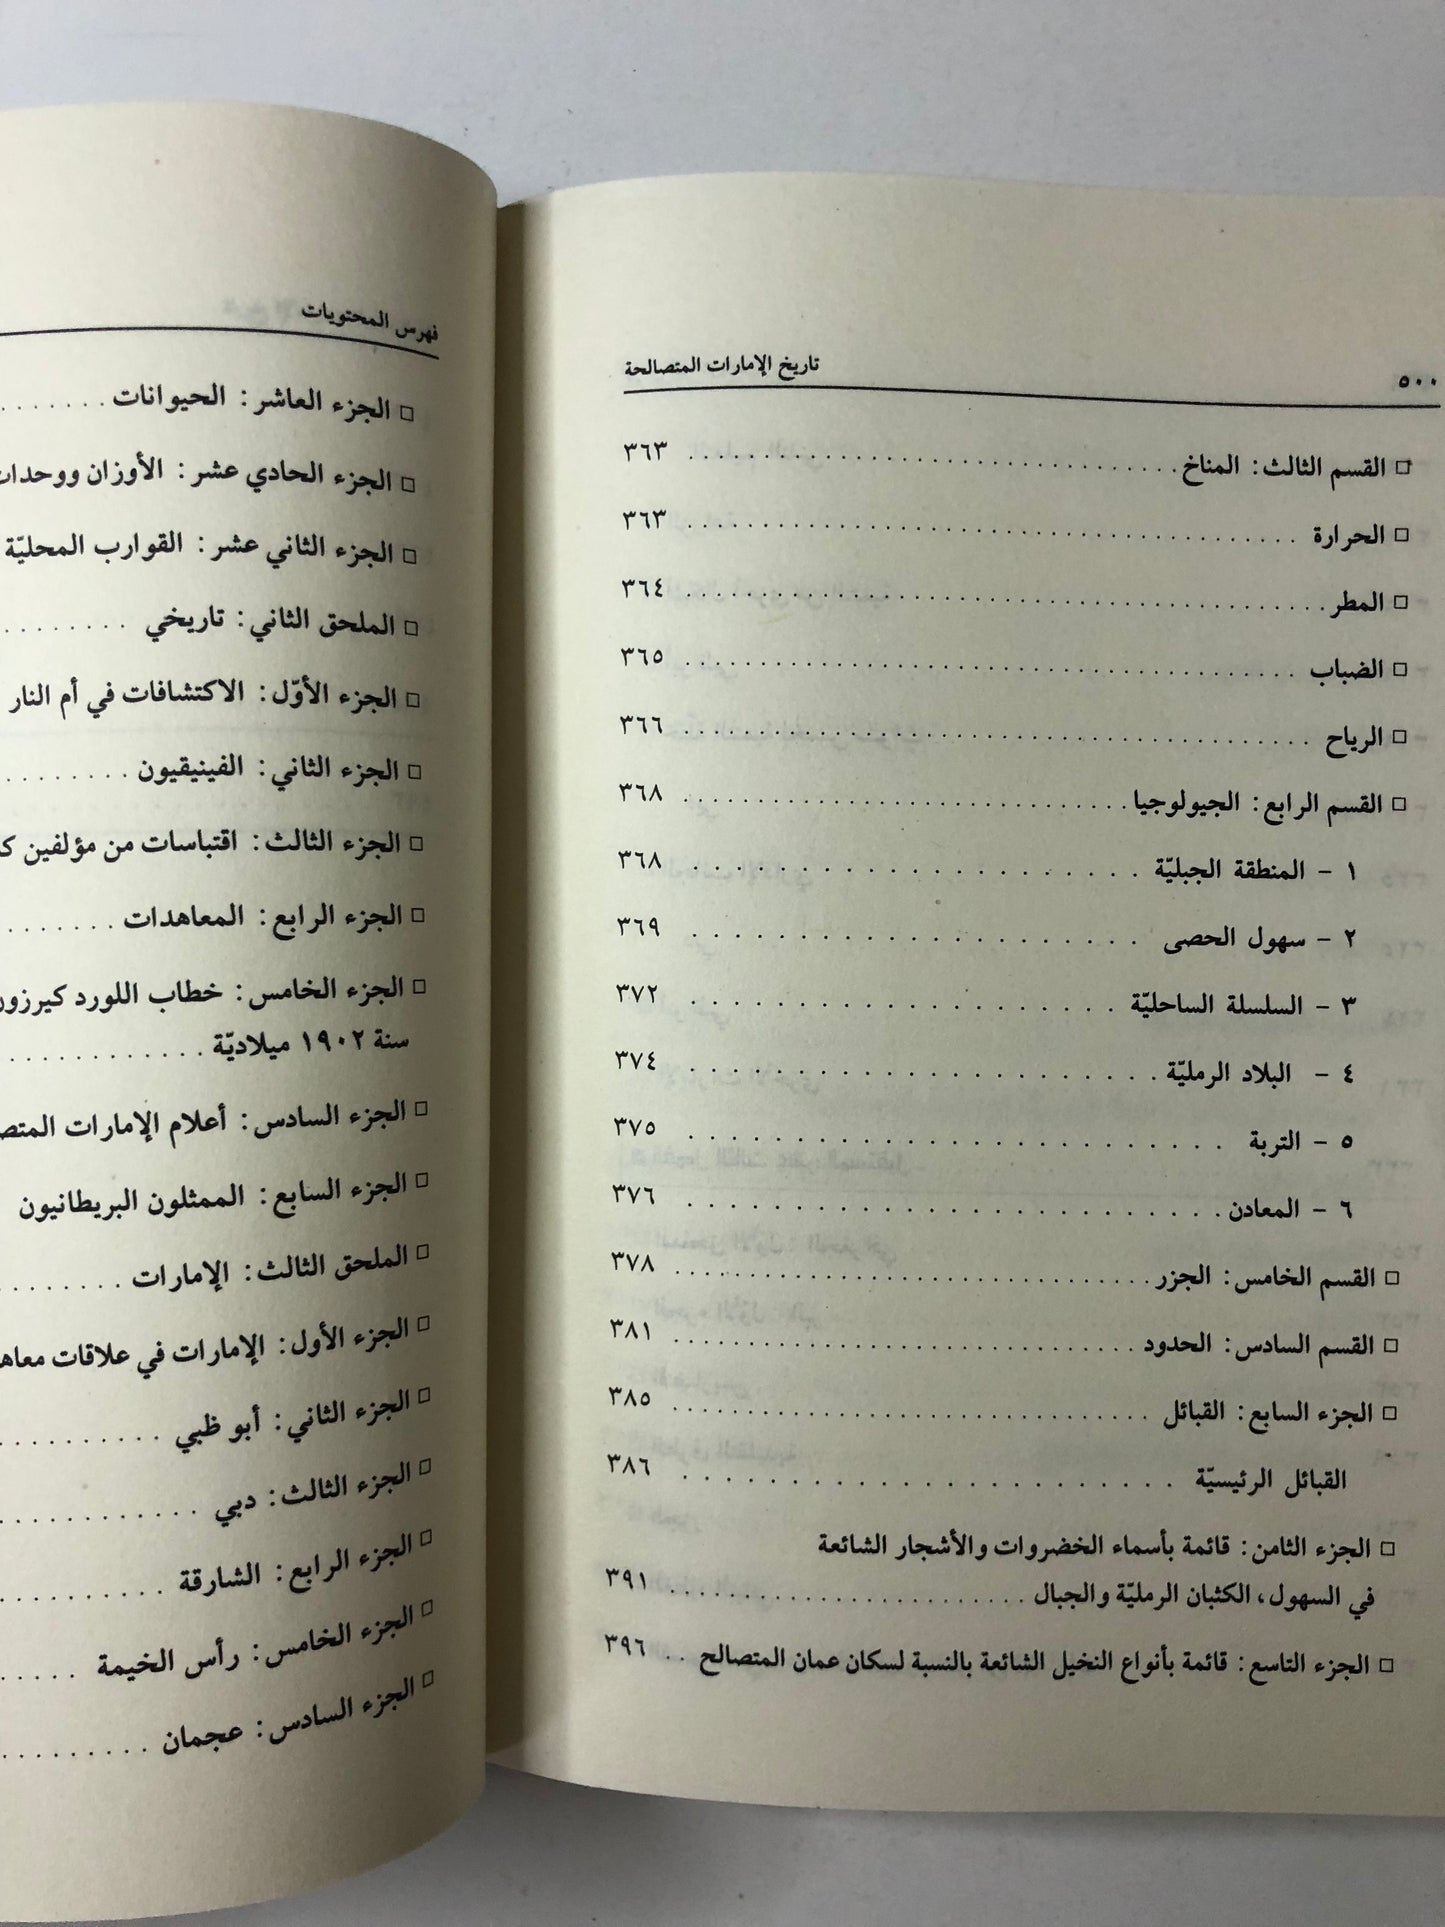 ٥٠٠
تاريخ الإمارات المتصالحة
□ القسم الثالث: المناخ ........ ٣٦٣
□ الحرارة ........ ٣٦٣
□ المطر ........ ٣٦٤
□ الضباب ........ ٣٦٥
□ الرياح ........ ٣٦٦
□ القسم الرابع: الجيولوجيا ........ ٣٦٨
١ - المنطقة الجبليّة ........ ٣٦٨
٢ - سهول الحصى ........ ٣٦٩
٣ - السلسلة الساحليّة ........ ٣٧٢
٤ - البلاد الرمليّة ........ ٣٧٤
٥ - التربة ........ ٣٧٥
٦ - المعادن ........ ٣٧٦
□ القسم الخامس: الجزر ........ ٣٧٨
□ القسم السادس: الحدود ........ ٣٨١
□ الجزء السابع: القبائل ........ ٣٨٥
القبائل الرئيسيّة ........ ٣٨٦
□ الجزء الثامن: قائمة بأسماء الخضروات والأشجار الشائعة
في السهول، الكثبان الرمليّة والجبال ........ ٣٩١
□ الجزء التاسع: قائمة بأنواع النخيل الشائعة بالنسبة لسكان عمان المتصالح .. ٣٩٦
فهرس المحتويات
□ الجزء العاشر: الحيوانات ........
□ الجزء الحادي عشر: الأوزان ووحدات
□ الجزء الثاني عشر: القوارب المحليّة
□ الملحق الثاني: تاريخي ........
□ الجزء الأوّل: الاكتشافات في أم النار
□ الجزء الثاني: الفينيقيون ........
□ الجزء الثالث: اقتباسات من مؤلفين
□ الجزء الرابع: المعاهدات ........
□ الجزء الخامس: خطاب اللورد كيرزون
سنة ١٩٠٢ ميلاديّة ........
□ الجزء السادس: أعلام الإمارات
□ الجزء السابع: الممثلون البريطانيون
□ الملحق الثالث: الإمارات ........
□ الجزء الأول: الإمارات في علاقات
□ الجزء الثاني: أبو ظبي ........
□ الجزء الثالث: دبي ........
□ الجزء الرابع: الشارقة ........
□ الجزء الخامس: رأس الخيمة ........
□ الجزء السادس: عجمان ........